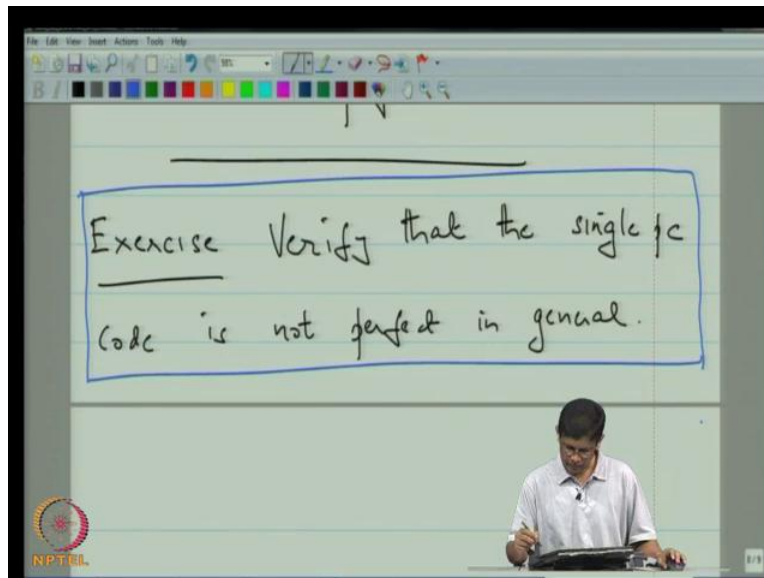 File Edit View Insert Actions Tools Help
98%
B I
Exercise Verify that the single pc
code is not perfect in general.
NPTEL
8/9